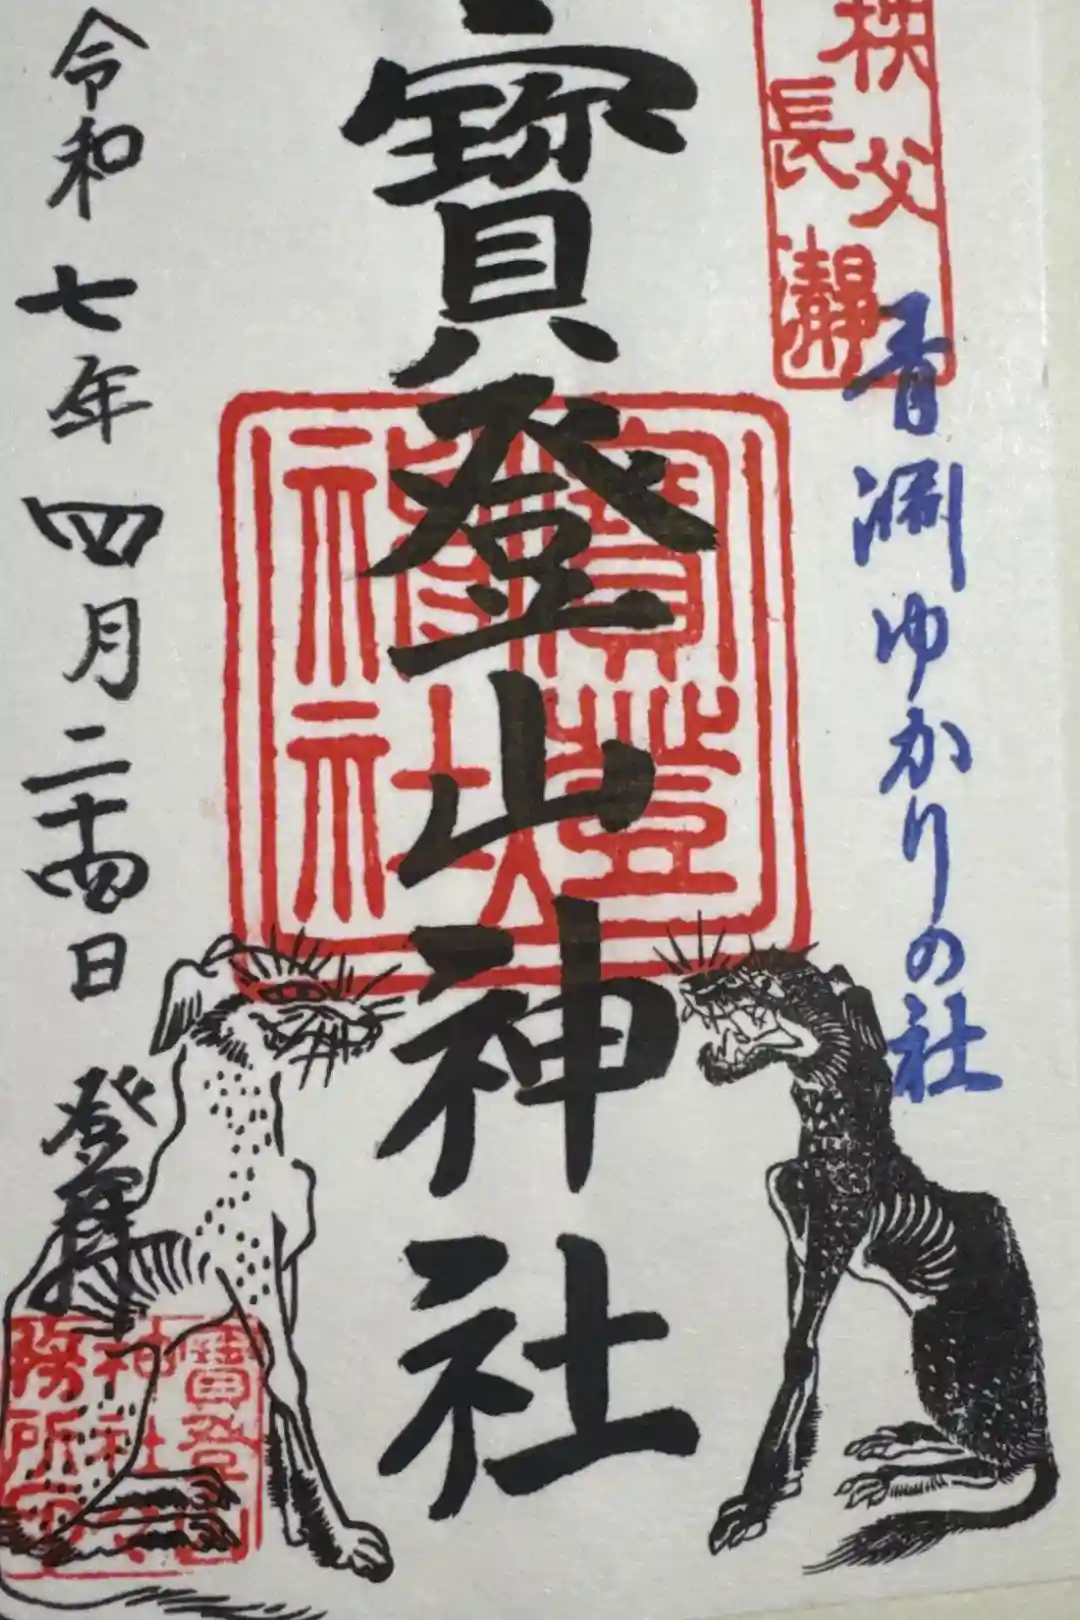 秩父
長瀞
青淵ゆかりの社
寳登山神社
寳登
山神
社
令和七年四月二十四日
登拝
寳登山
神社
務所